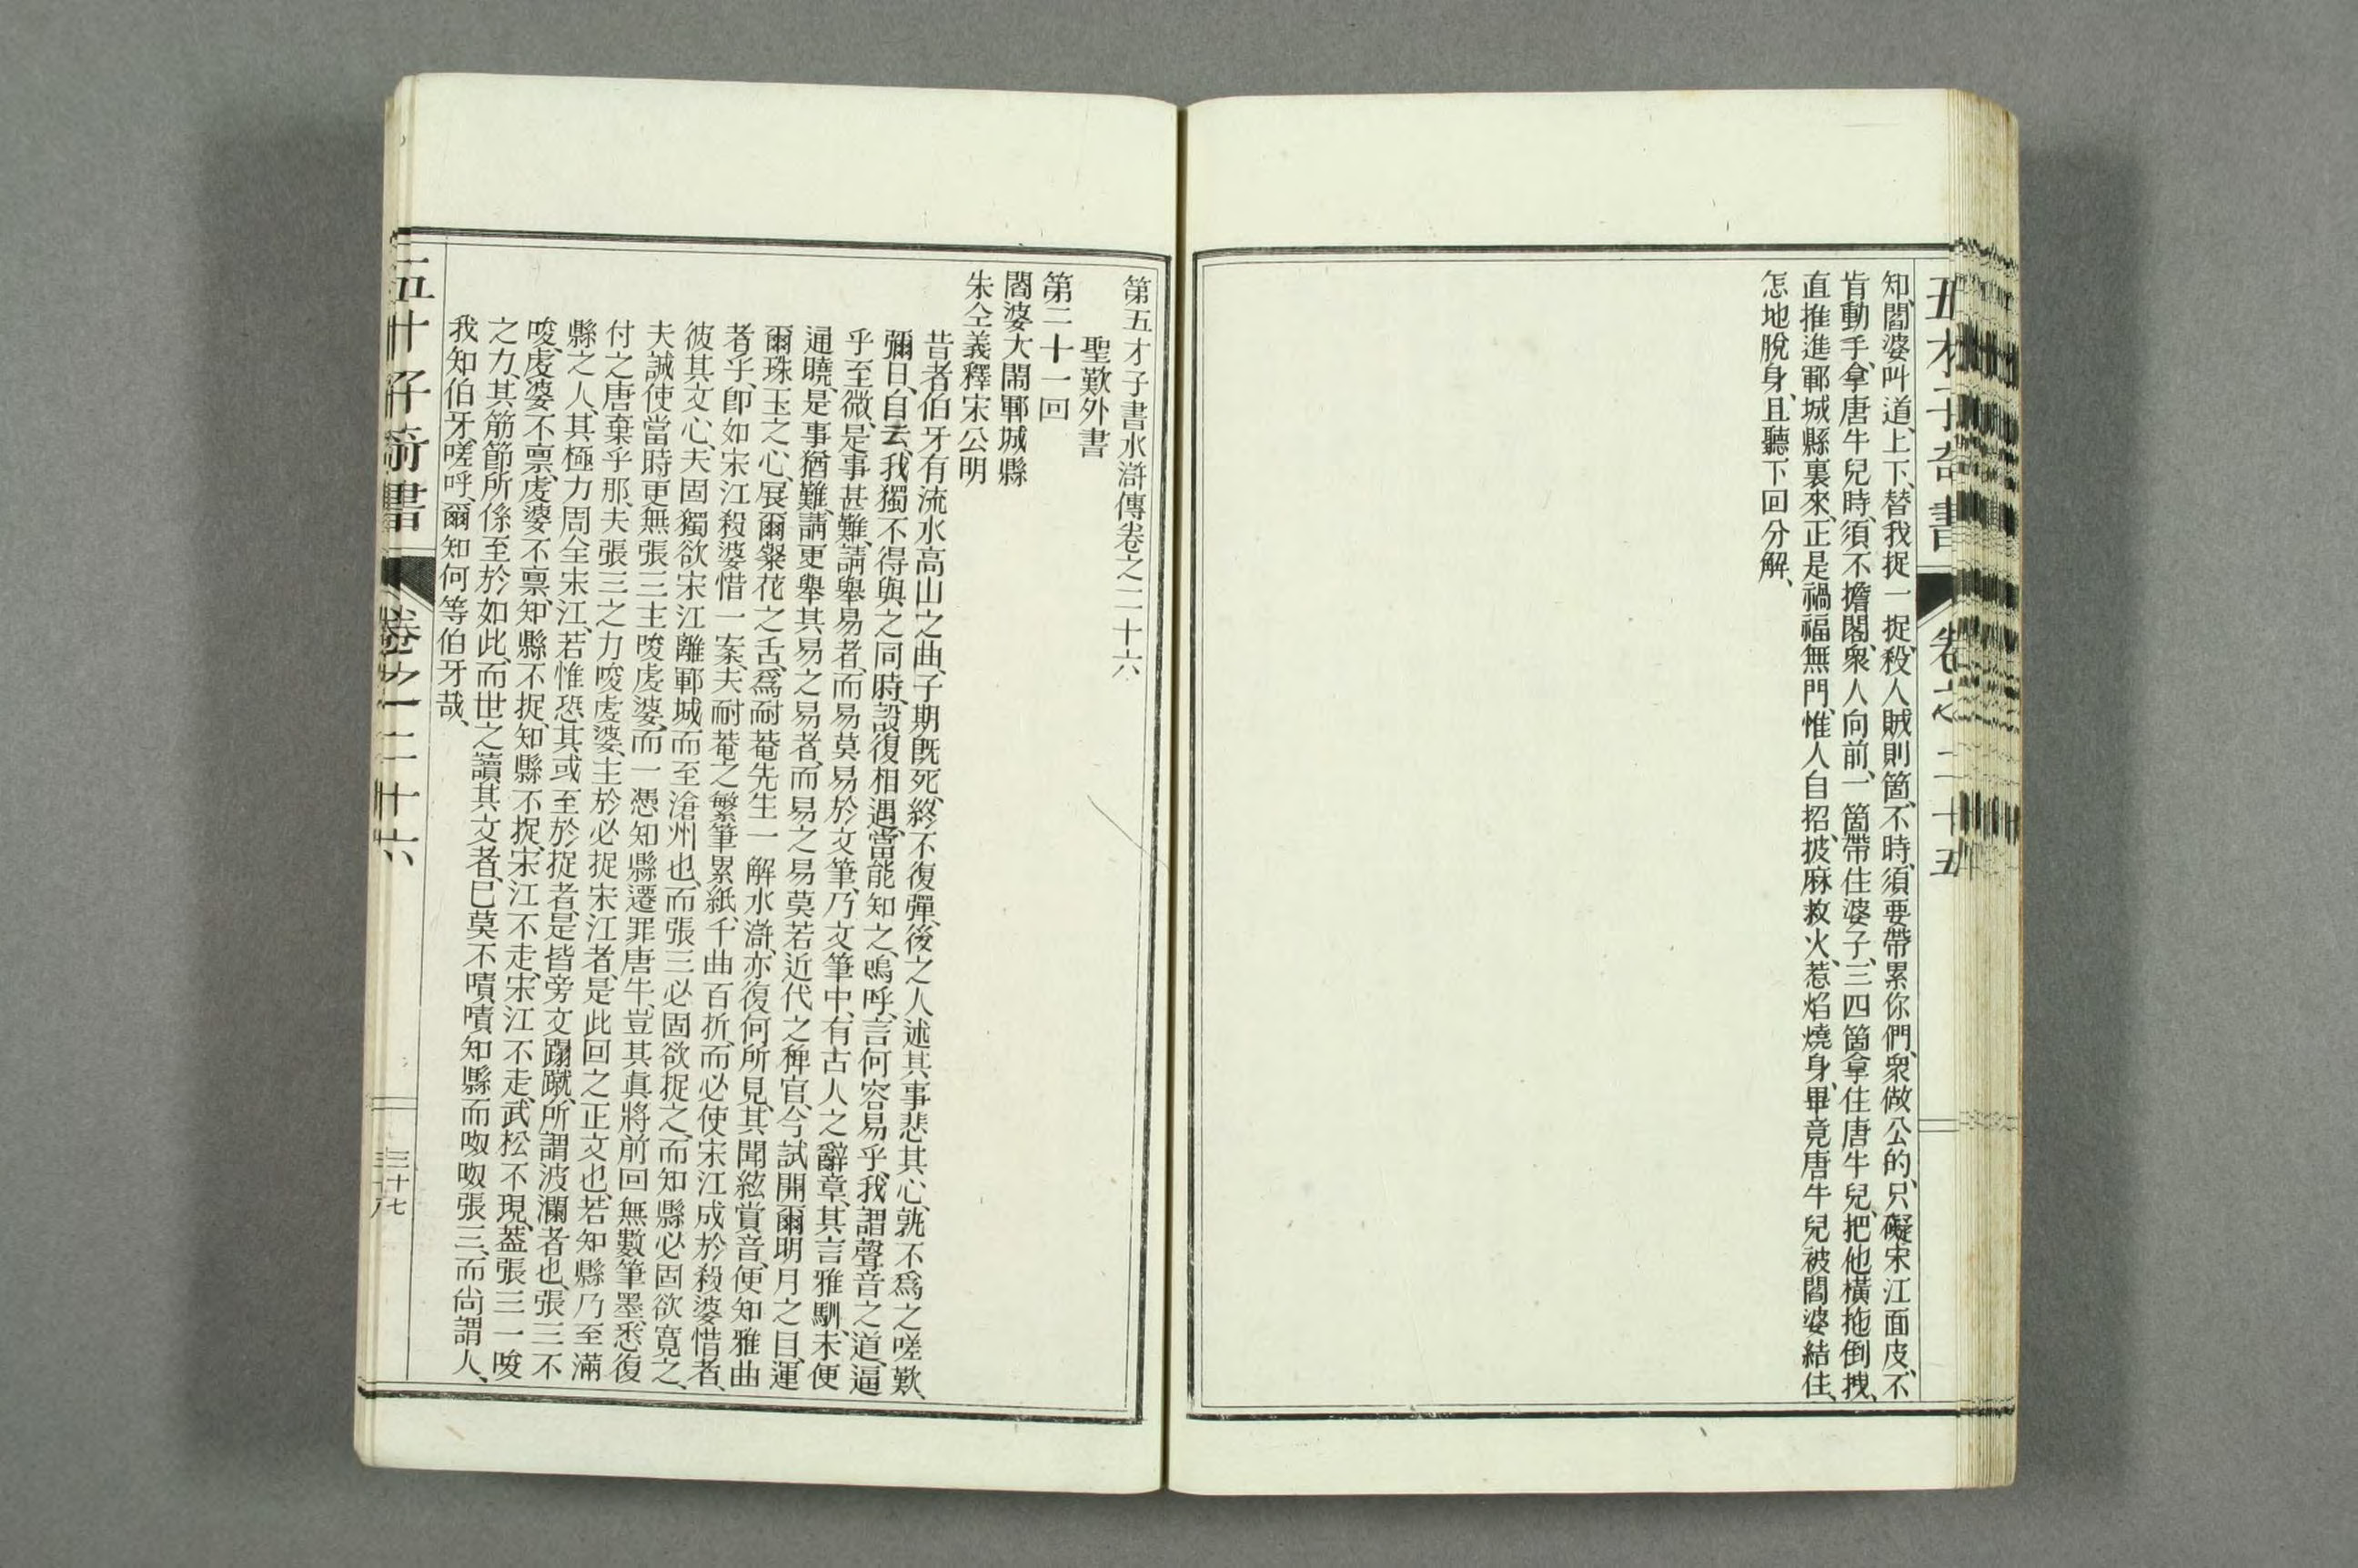 知、閻婆叫道、上下、替我捉一捉、殺人賊則箇、不時、須要帶累你們、衆做公的、只礙宋江面皮、不
肯動手、拿唐牛兒時、須不擔閣、衆人向前、一箇帶住婆子、三四箇拿住唐牛兒、把他橫拖倒拽、
直推進鄆城縣裏來、正是禍福無門、惟人自招、披麻救火、惹焰燒身、畢竟唐牛兒被閻婆結住、
怎地脫身、且聽下回分解、
第五才子書水滸傳卷之二十六
聖歎外書
第二十一回
閻婆大鬧鄆城縣
朱仝義釋宋公明
昔者伯牙有流水高山之曲、子期旣死、終不復彈、後之人述其事、悲其心、孰不爲之嗟歎
彌日、自云、我獨不得與之同時、設復相遇、當能知之、嗚呼、言何容易乎、我謂聲音之道、逼
乎至微、是事甚難、請舉易者、而易莫易於文筆、乃文筆中、有古人之辭章、其言雅馴、未便
通曉、是事猶難、請更舉其易之易者、而易之易莫若近代之稗官、今試開爾明月之目、運
爾珠玉之心、展爾粲花之舌、爲耐菴先生一解水滸、亦復何所見、其聞絃賞音、便知雅曲
者乎、卽如宋江殺婆惜一案、夫耐菴之繁筆累紙、千曲百折、而必使宋江成於殺婆惜者、
彼其文心、夫固獨欲宋江離鄆城而至滄州也、而張三必固欲捉之、而知縣必固欲寬之、
夫誠使當時更無張三主唆虔婆、而一憑知縣遷罪唐牛、豈其眞將前回無數筆墨、悉復
付之唐棄乎那、夫張三之力唆虔婆、主於必捉宋江者、是此回之正文也、若知縣乃至滿
縣之人、其極力周全宋江、若惟恐其或至於捉者、是皆旁文蹋蹴、所謂波瀾者也、張三不
唆、虔婆不禀、虔婆不禀、知縣不捉、知縣不捉、宋江不走、宋江不走、武松不現、葢張三一唆
之力、其筋節所係至於如此、而世之讀其文者、已莫不嘖嘖知縣而呶呶張三、而尙謂人、
我知伯牙、嗟呼、爾知何等伯牙哉、
卷之二十六
三十七